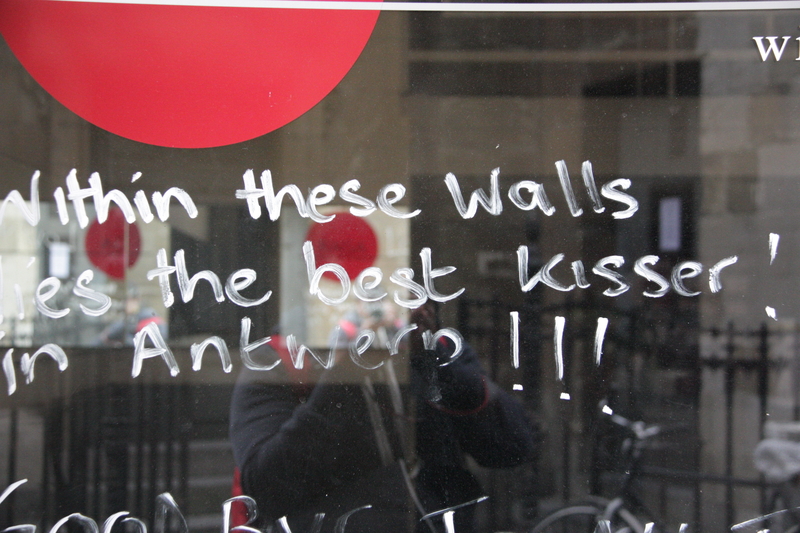 Within these walls
lies the best kisser!
in Antwerp !!!